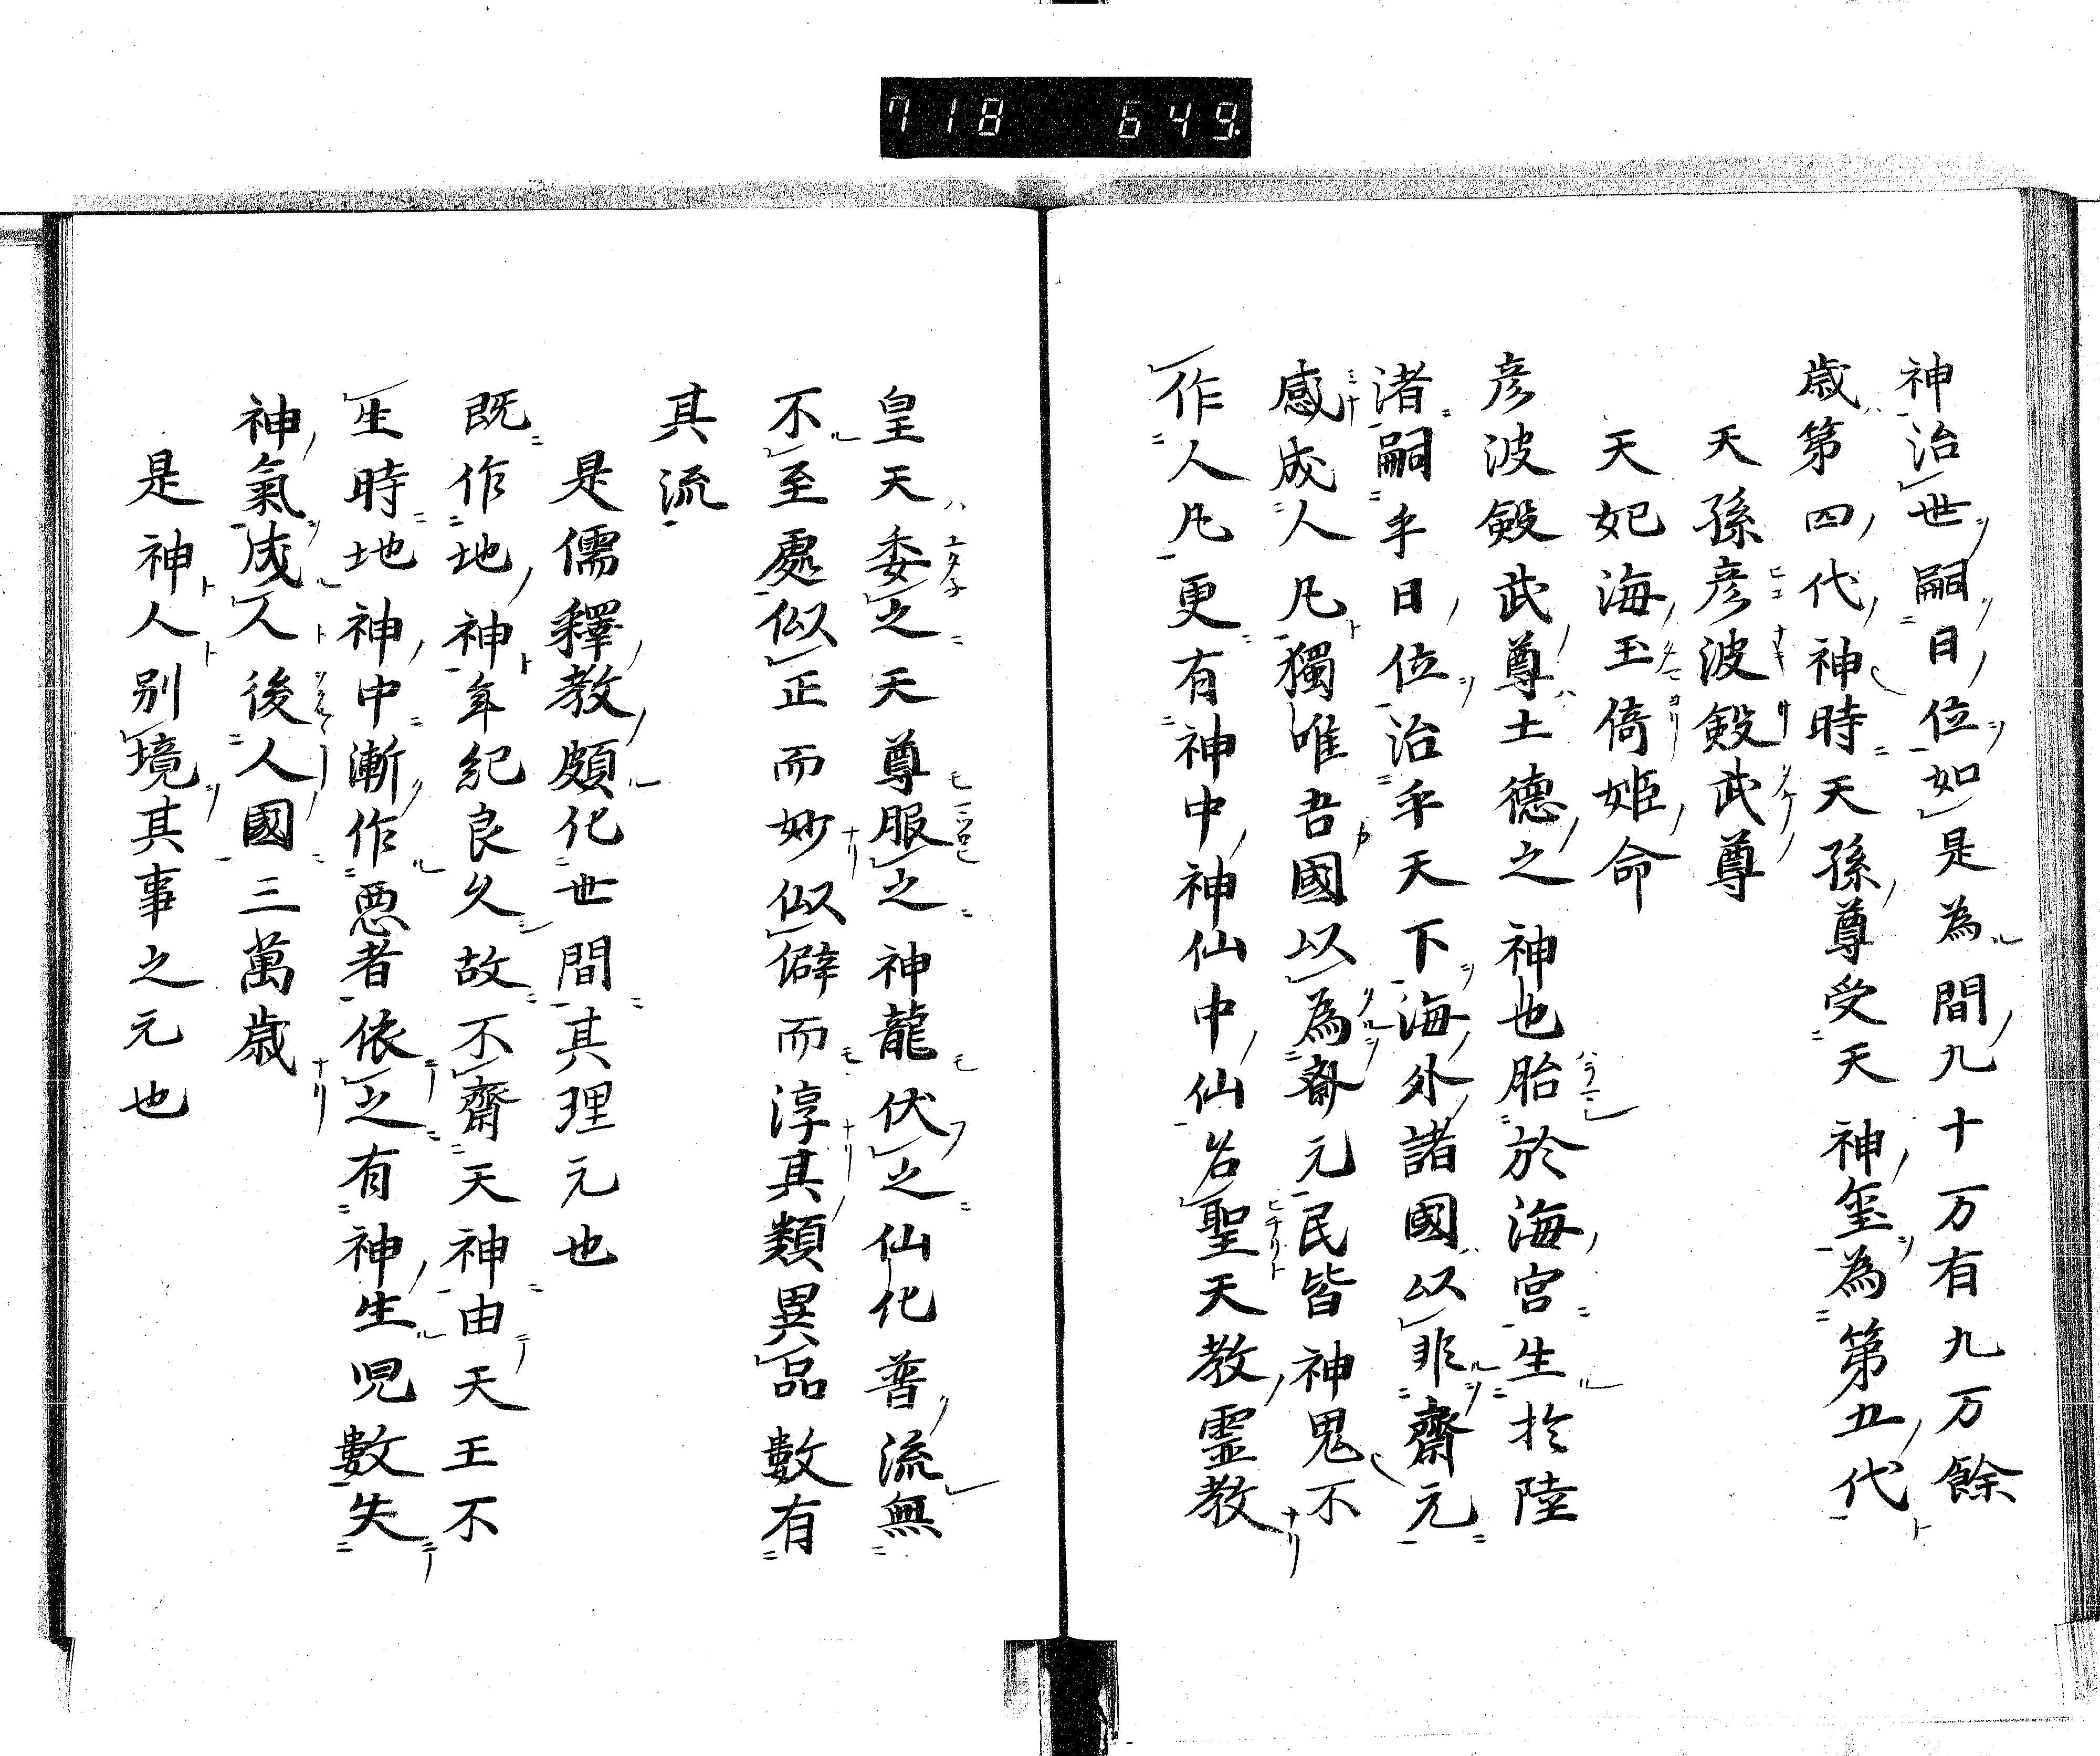 718 649.
神治世嗣日位如是為間九十万有九万餘
歳第四代神時天孫尊受天神璽為第五代
天孫彦波瀲武尊
天妃海玉倚姫命
彦波瀲武尊土德之神也胎於海宮生於陸
渚嗣乎日位治乎天下海外諸國以非齋元
感成人凡獨唯吾國以為齋元民皆神鬼不
作人凡更有神中神仙中仙名聖天教霊教
皇天委之天尊服之神龍伏之仙化普流無
不至處似正而妙似僻而淳其類異品數有
其流
是儒釋教頗化世間其理元也
既作地神年紀良久故不齋天神由天王不
生時地神中漸作悪者依之有神生児數失
神氣成人後人國三萬歳
是神人別境其事之元也